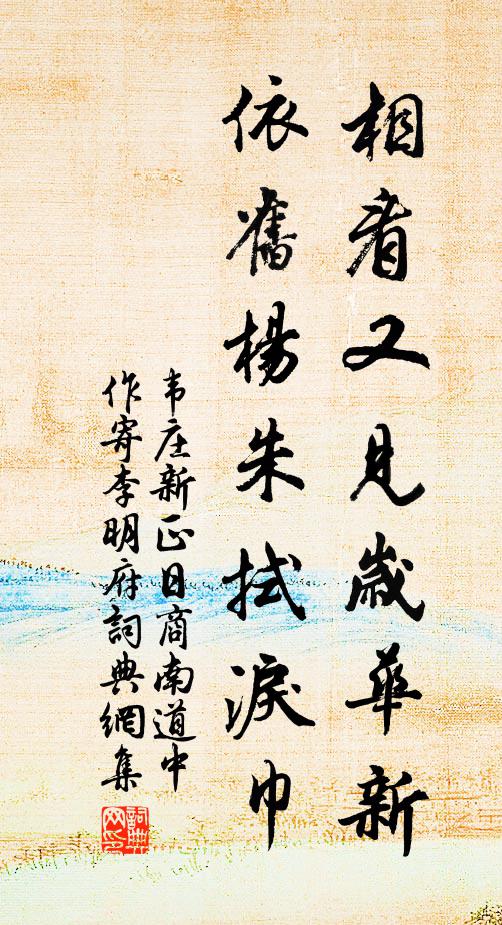 相看又見歲華新
依舊楊朱拭淚巾
韦庄新正日商南道中
作寄李明府詞典網集
詞典
网印